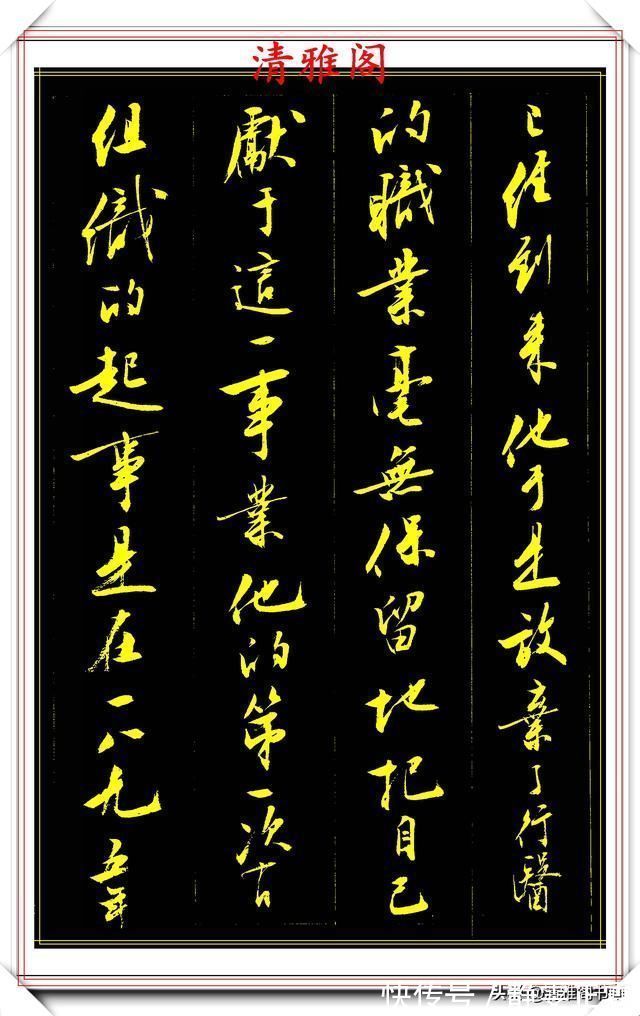 清雅阁
已經到來他于是放棄了行醫
的職業毫無保留地把自己
獻于這一事業他的第一次有
組織的起事是在一八九五年
快传号
头条@清雅阁书画